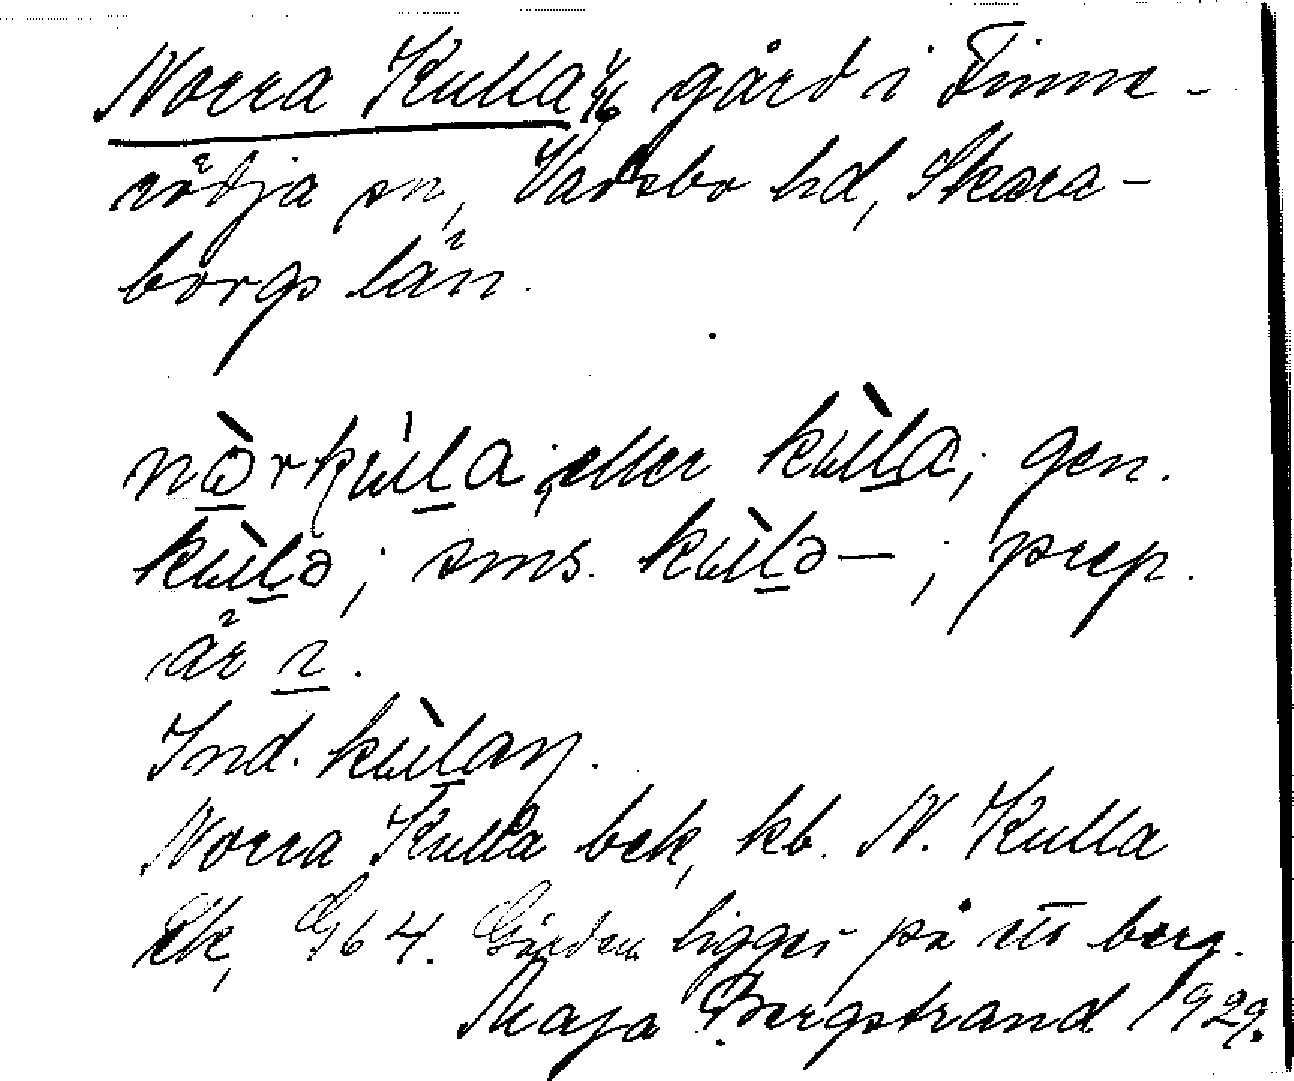 Norra Kulla 1/6 gård i Finne-
rödja sn, Vadsbo hd, Skara-
borgs län.
nə̀rkùla, eller kùla; gen.
kùlə; sms. kùlə—; prep.
är ı.
Ind. kùlaŋ.
Norra Kulla bek, kb. N. Kulla
Ek, Gb 4. Gården ligger på ett berg.
Maja Bergstrand 1929.